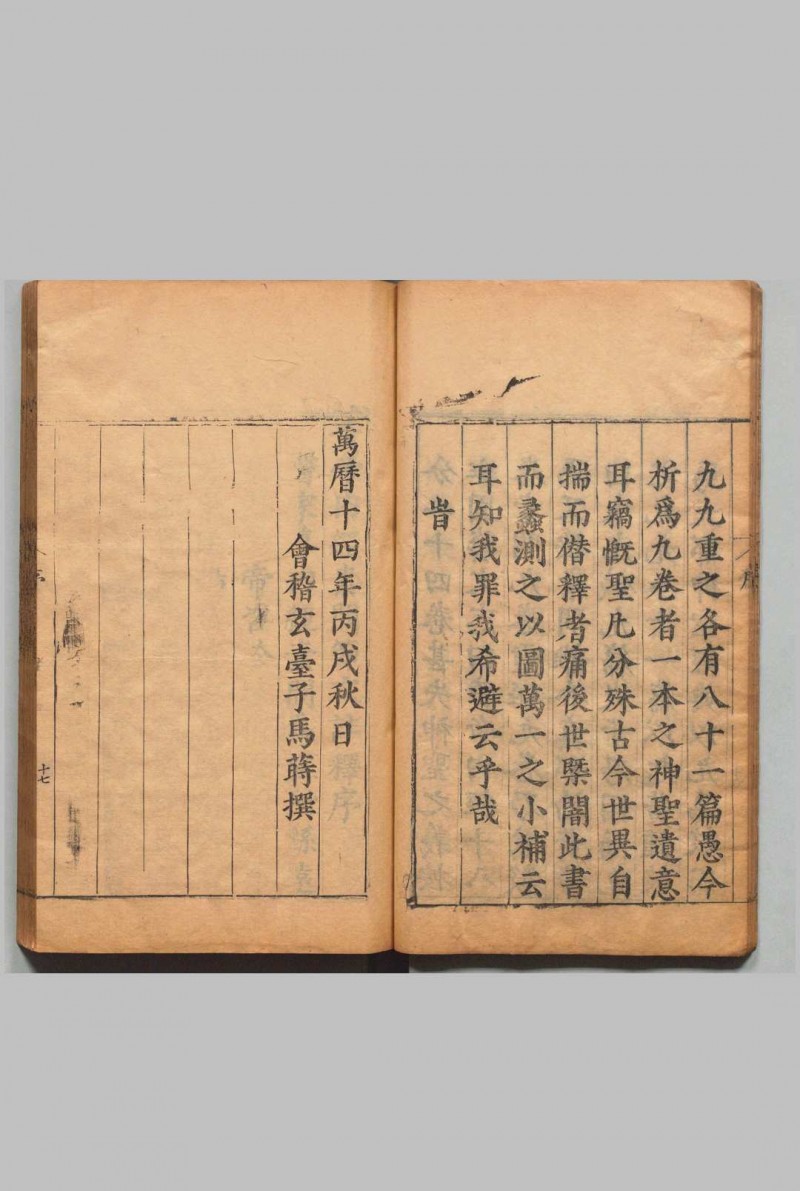 九九重之各有八十一篇愚今
析爲九卷者一本之神聖遺意
耳竊慨聖凡分殊古今世異自
揣而僭釋者痛後世槩闇此書
而蠡測之以圖萬一之小補云
耳知我罪我希避云乎哉
旹
萬曆十四年丙戌秋日
會稽玄臺子馬蒔撰
序
十七